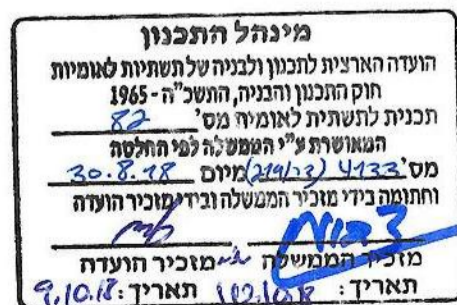 מינהל התכנון
הועדה הארצית לתכנון ולבניה של תשתיות לאומיות
חוק התכנון והבניה, התשכ"ה - 1965
תכנית לתשתית לאומית מס' 82
המאושרת ע"י הממשלה לפי החלטה
מס' 4133 (דר/219) מיום 30.8.18
וחתומה בידי מזכיר הממשלה ובידי מזכיר הועדה
מזכיר הממשלה מזכיר הועדה
תאריך: תאריך: 9.10.18